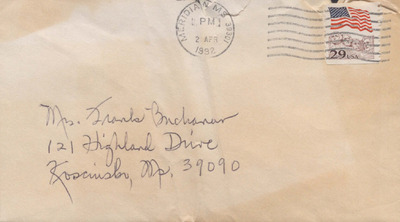 MERIDIAN, MS 393
PM
2 APR
1992
29 USA
Mrs. Frank Buchanan
121 Highland Drive
Kosciusko, Ms. 39090